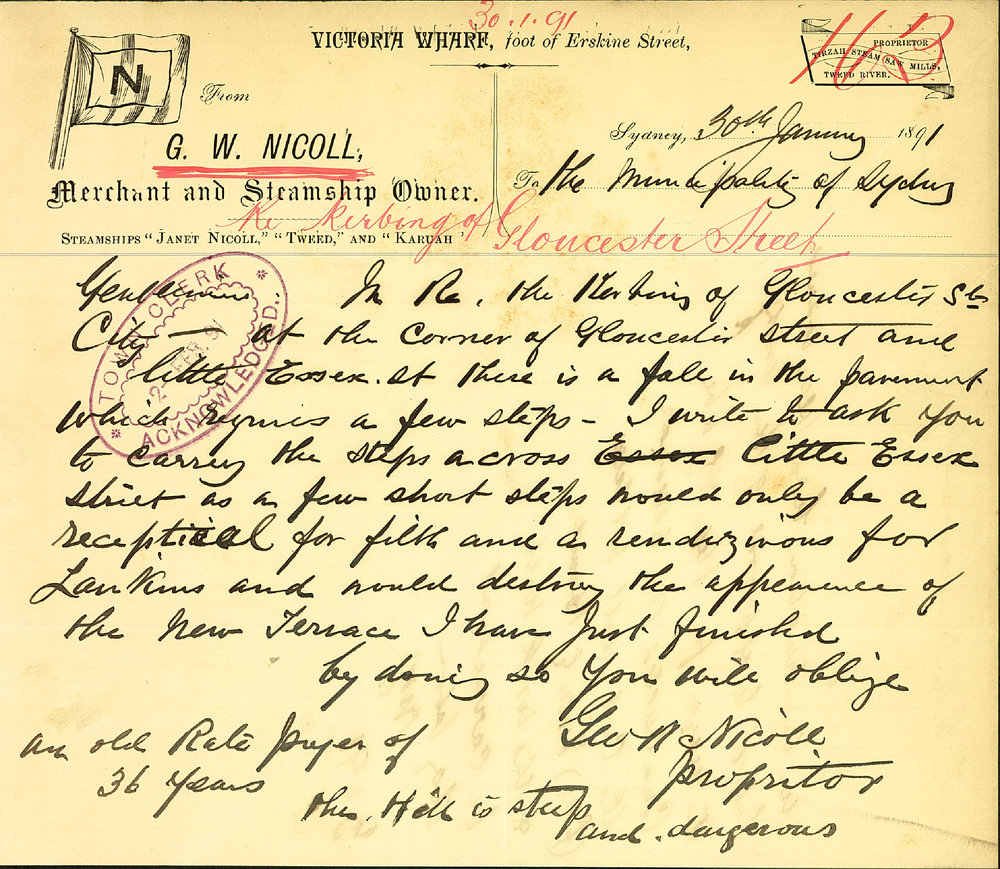 30.1.91
VICTORIA WHARF, foot of Erskine Street,
N
PROPRIETOR
TIRZAH STEAM SAW MILLS,
TWEED RIVER.
From
G. W. NICOLL,
Merchant and Steamship Owner.
STEAMSHIPS "JANET NICOLL," "TWEED," AND "KARUAH"
Sydney, 30th January 1891
To the Municipality of Sydney
Re kerbing of Gloucester Street
TOWN CLERK
2 FEB. 91
ACKNOWLEDGED.
Gentlemen In Re, the Kerbing of Gloucester St
City — At the corner of Gloucester street and
little Essex. St there is a fall in the pavement
which requires a few steps – I write to ask you
to carrey the steps across Essex Little Essex
street as a few short steps would only be a
recepticeal for filth and a rendezivous for
Larikins and would destroy the appearence of
the New Terrace I have Just finished
by doing so You will oblige
Geo W Nicoll
Propritor
an old Rate payer of
36 years
the. Hill is steep
and. dangerous